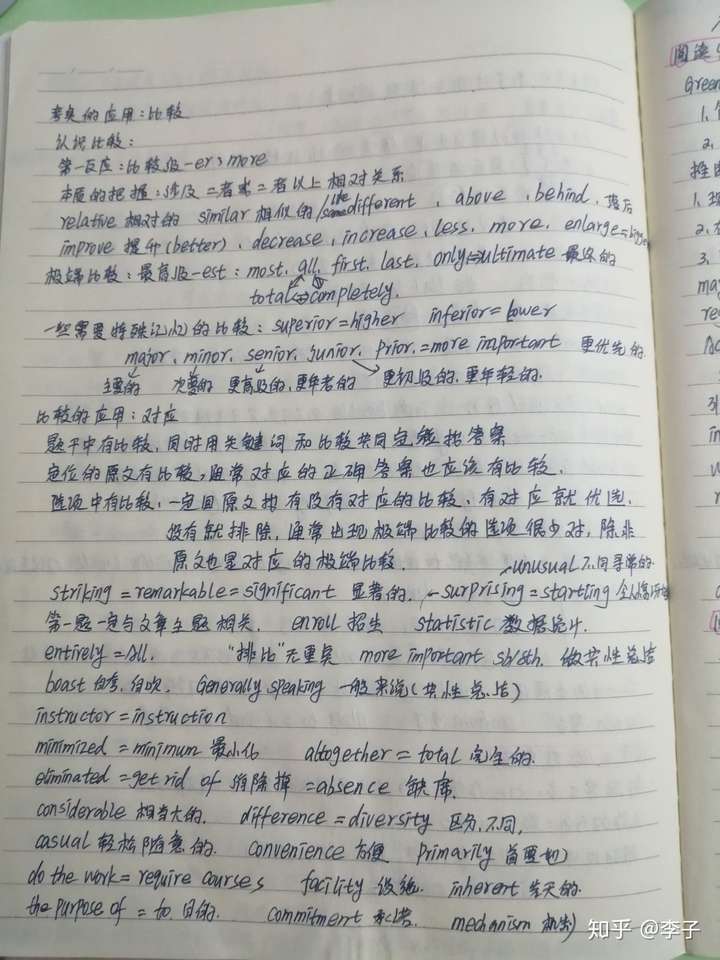 考夹的应用:比较
认识比较:
第一反应:比较级-er、more
本质的把握:涉及二者或二者以上相对关系
relative 相对的 similar 相似的/like same different, above, behind, 落后
improve 提升(better)、decrease, increase, less, more, enlarge=bigger
极端比较:最高级-est:most, all, first, last, only⇔ultimate 最终的
total⇔completely.
一些需要特殊记忆的比较:superior=higher inferior=lower
major、minor、senior、junior, prior=more important 更优先的
主要的 次要的 更高级的、更年老的 更初级的、更年轻的.
比较的应用:对应
题干中有比较,同时用关键词和比较共同定位找答案
定位的原文有比较,通常对应的正确答案也应该有比较.
选项中有比较,一定回原文找有没有对应的比较,有对应就优选,
没有就排除,通常出现极端比较的选项很少对,除非
原文也是对应的极端比较. unusual 不同寻常的
striking=remarkable=significant 显著的. surprising=startling
第一题一定与文章主题相关. enroll 招生 statistic 数据统计.
entirely=All. "排比"无重点 more important sb/sth. 做共性总结
boast 自夸,自吹. Generally speaking 一般来说(共性总结)
instructor=instruction
minimized=minimum 最小化 altogether=total 完全的.
eliminated=get rid of 消除掉=absence 缺席.
considerable 相当大的. difference=diversity 区分,不同,
casual 轻松随意的. convenience 方便 primarily 首要的
do the work=require courses facility 设施. inherent 生天的.
the purpose of=to 目的. commitment 承诺. mechanism 机制
知乎 @李子
阅读
Green
1.
2.
1.
2.
3.
may